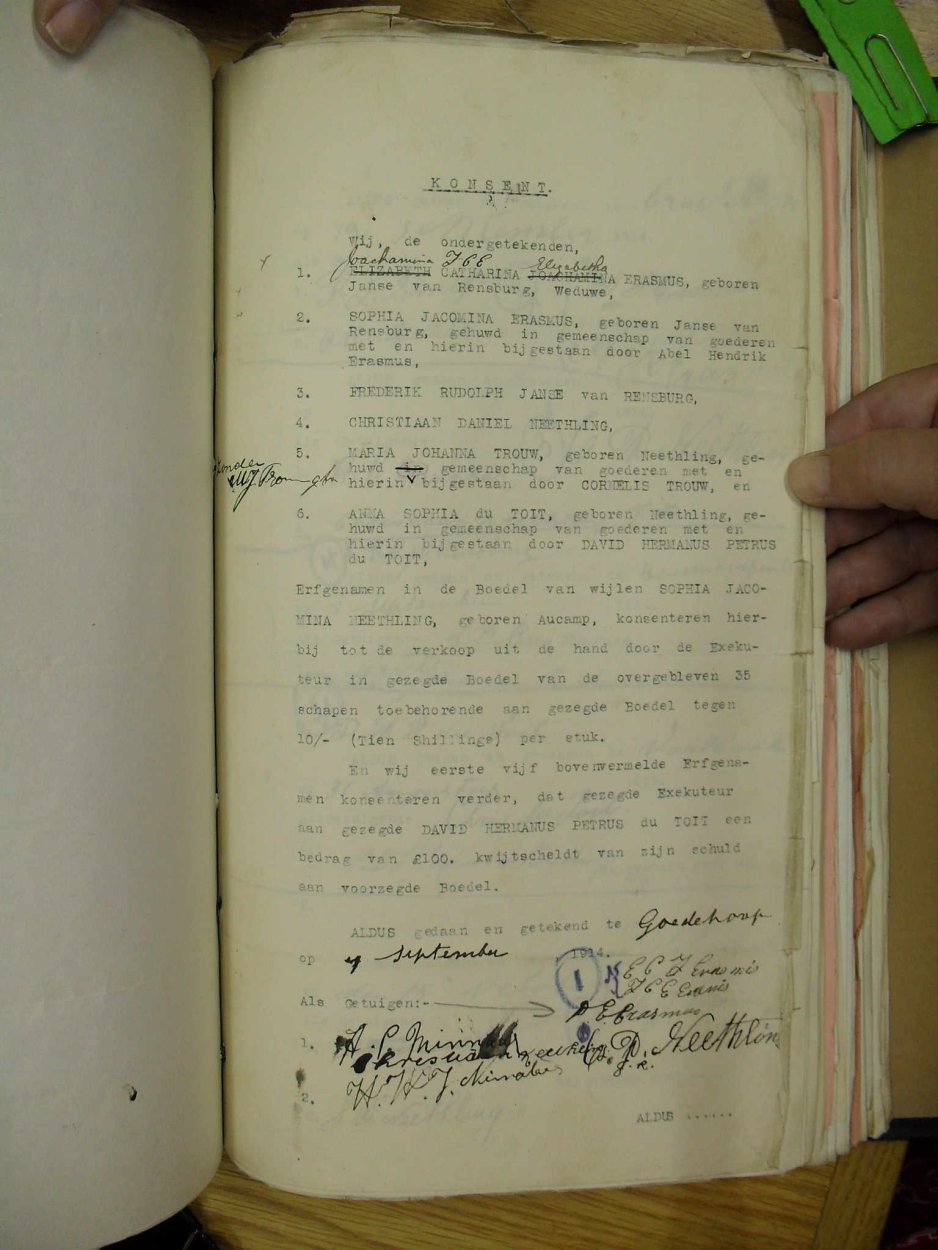 KONSENT.
Wij, de ondergetekenden,
Joachamina J C E Elizabetha
1. ELIZABETH CATHARINA JOACHAMINA ERASMUS, geboren
Janse van Rensburg, Weduwe,
2. SOPHIA JACOMINA ERASMUS, geboren Janse van
Rensburg, gehuwd in gemeenschap van goederen
met en hierin bijgestaan door Abel Hendrik
Erasmus,
3. FREDERIK RUDOLPH JANSE van RENSBURG,
4. CHRISTIAAN DANIEL NEETHLING,
5. MARIA JOHANNA TROUW, geboren Neethling, ge-
zonder
huwd in gemeenschap van goederen met en
M J Trouw
hierin bijgestaan door CORNELIS TROUW, en
6. ANNA SOPHIA du TOIT, geboren Neethling, ge-
huwd in gemeenschap van goederen met en
hierin bijgestaan door DAVID HERMANUS PETRUS
du TOIT,
Erfgenamen in de Boedel van wijlen SOPHIA JACO-
MINA NEETHLING, geboren Aucamp, konsenteren hier-
bij tot de verkoop uit de hand door de Exeku-
teur in gezegde Boedel van de overgebleven 35
schapen toebehorende aan gezegde Boedel tegen
10/- (Tien Shillings) per stuk.
En wij eerste vijf bovenvermelde Erfgena-
men konsenteren verder, dat gezegde Exekuteur
aan gezegde DAVID HERMANUS PETRUS du TOIT een
bedrag van £100. kwijtscheldt van zijn schuld
aan voorzegde Boedel.
ALDUS gedaan en getekend te Goedehoop
op September , 1914.
1 E C J Erasmus
J C E Erasmus
Als Getuigen:-
E Erasmus
1. A. C.
C. D. Neethling
2. H. W. J.
ALDUS ......